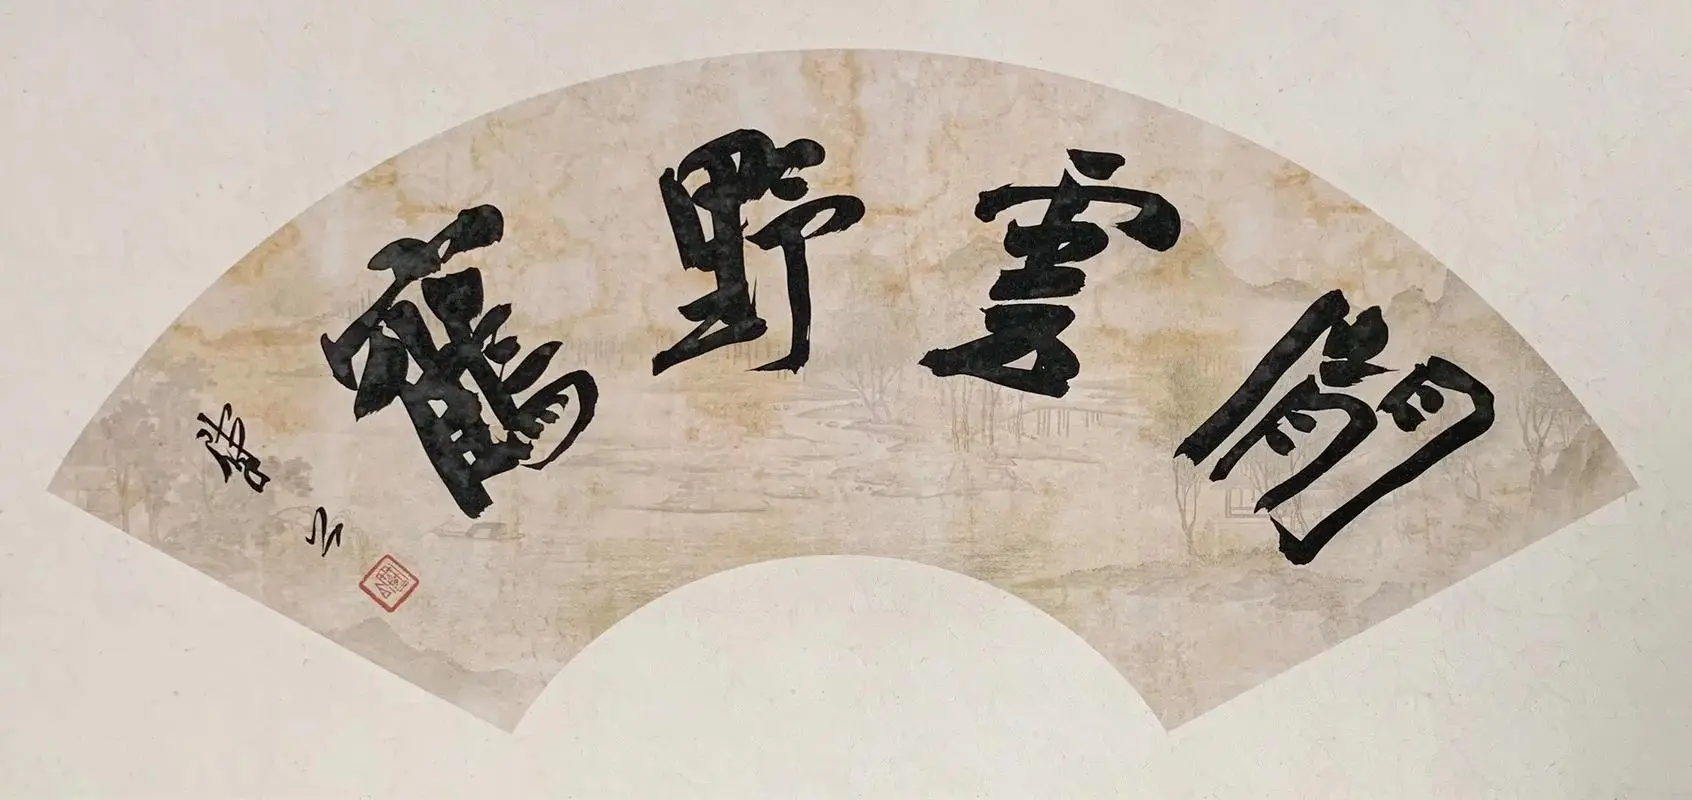 閒雲野鶴